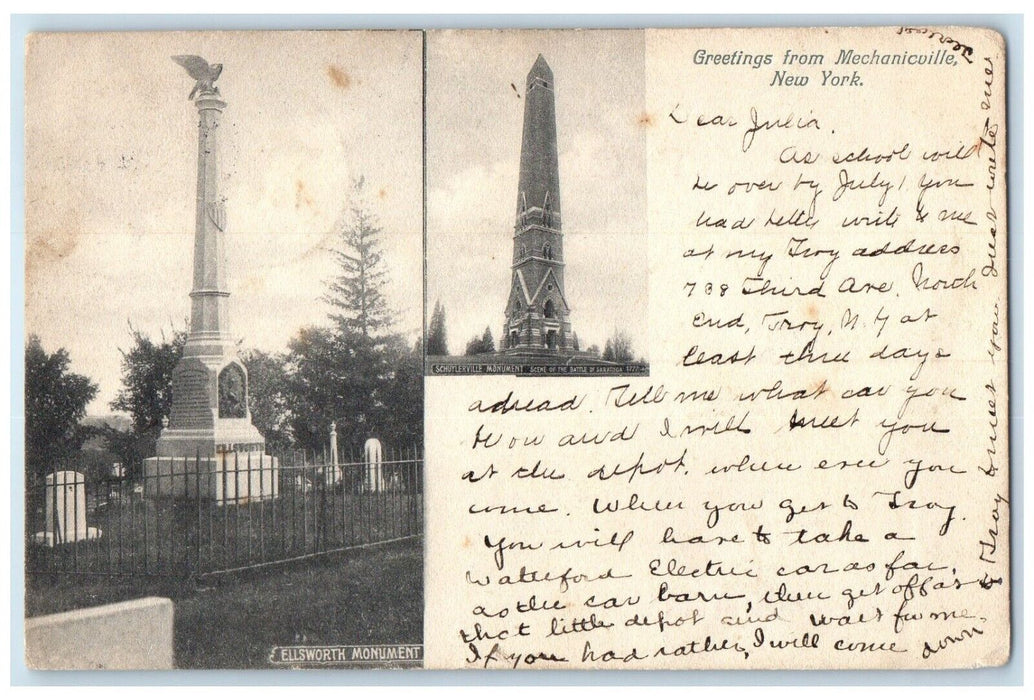 Greetings from Mechanicville,
New York.
Dear Julia.
As school will
be over by July 1 you
had better write to me
at my Troy address
738 Third Ave. North
End, Troy, N.Y at
least three days
adread. Tell me what car you
will be on and I will meet you
at the depot. when ever you
come. When you get to Troy.
You will have to take a
Waterford Electric car as far
as the car barn, then get off at
that little depot and wait for me.
If you had rather, I will come down
to Troy and meet you. Just write me
ELLSWORTH
SCHUYLERVILLE MONUMENT SCENE OF THE BATTLE OF SARATOGA 1777
ELLSWORTH MONUMENT